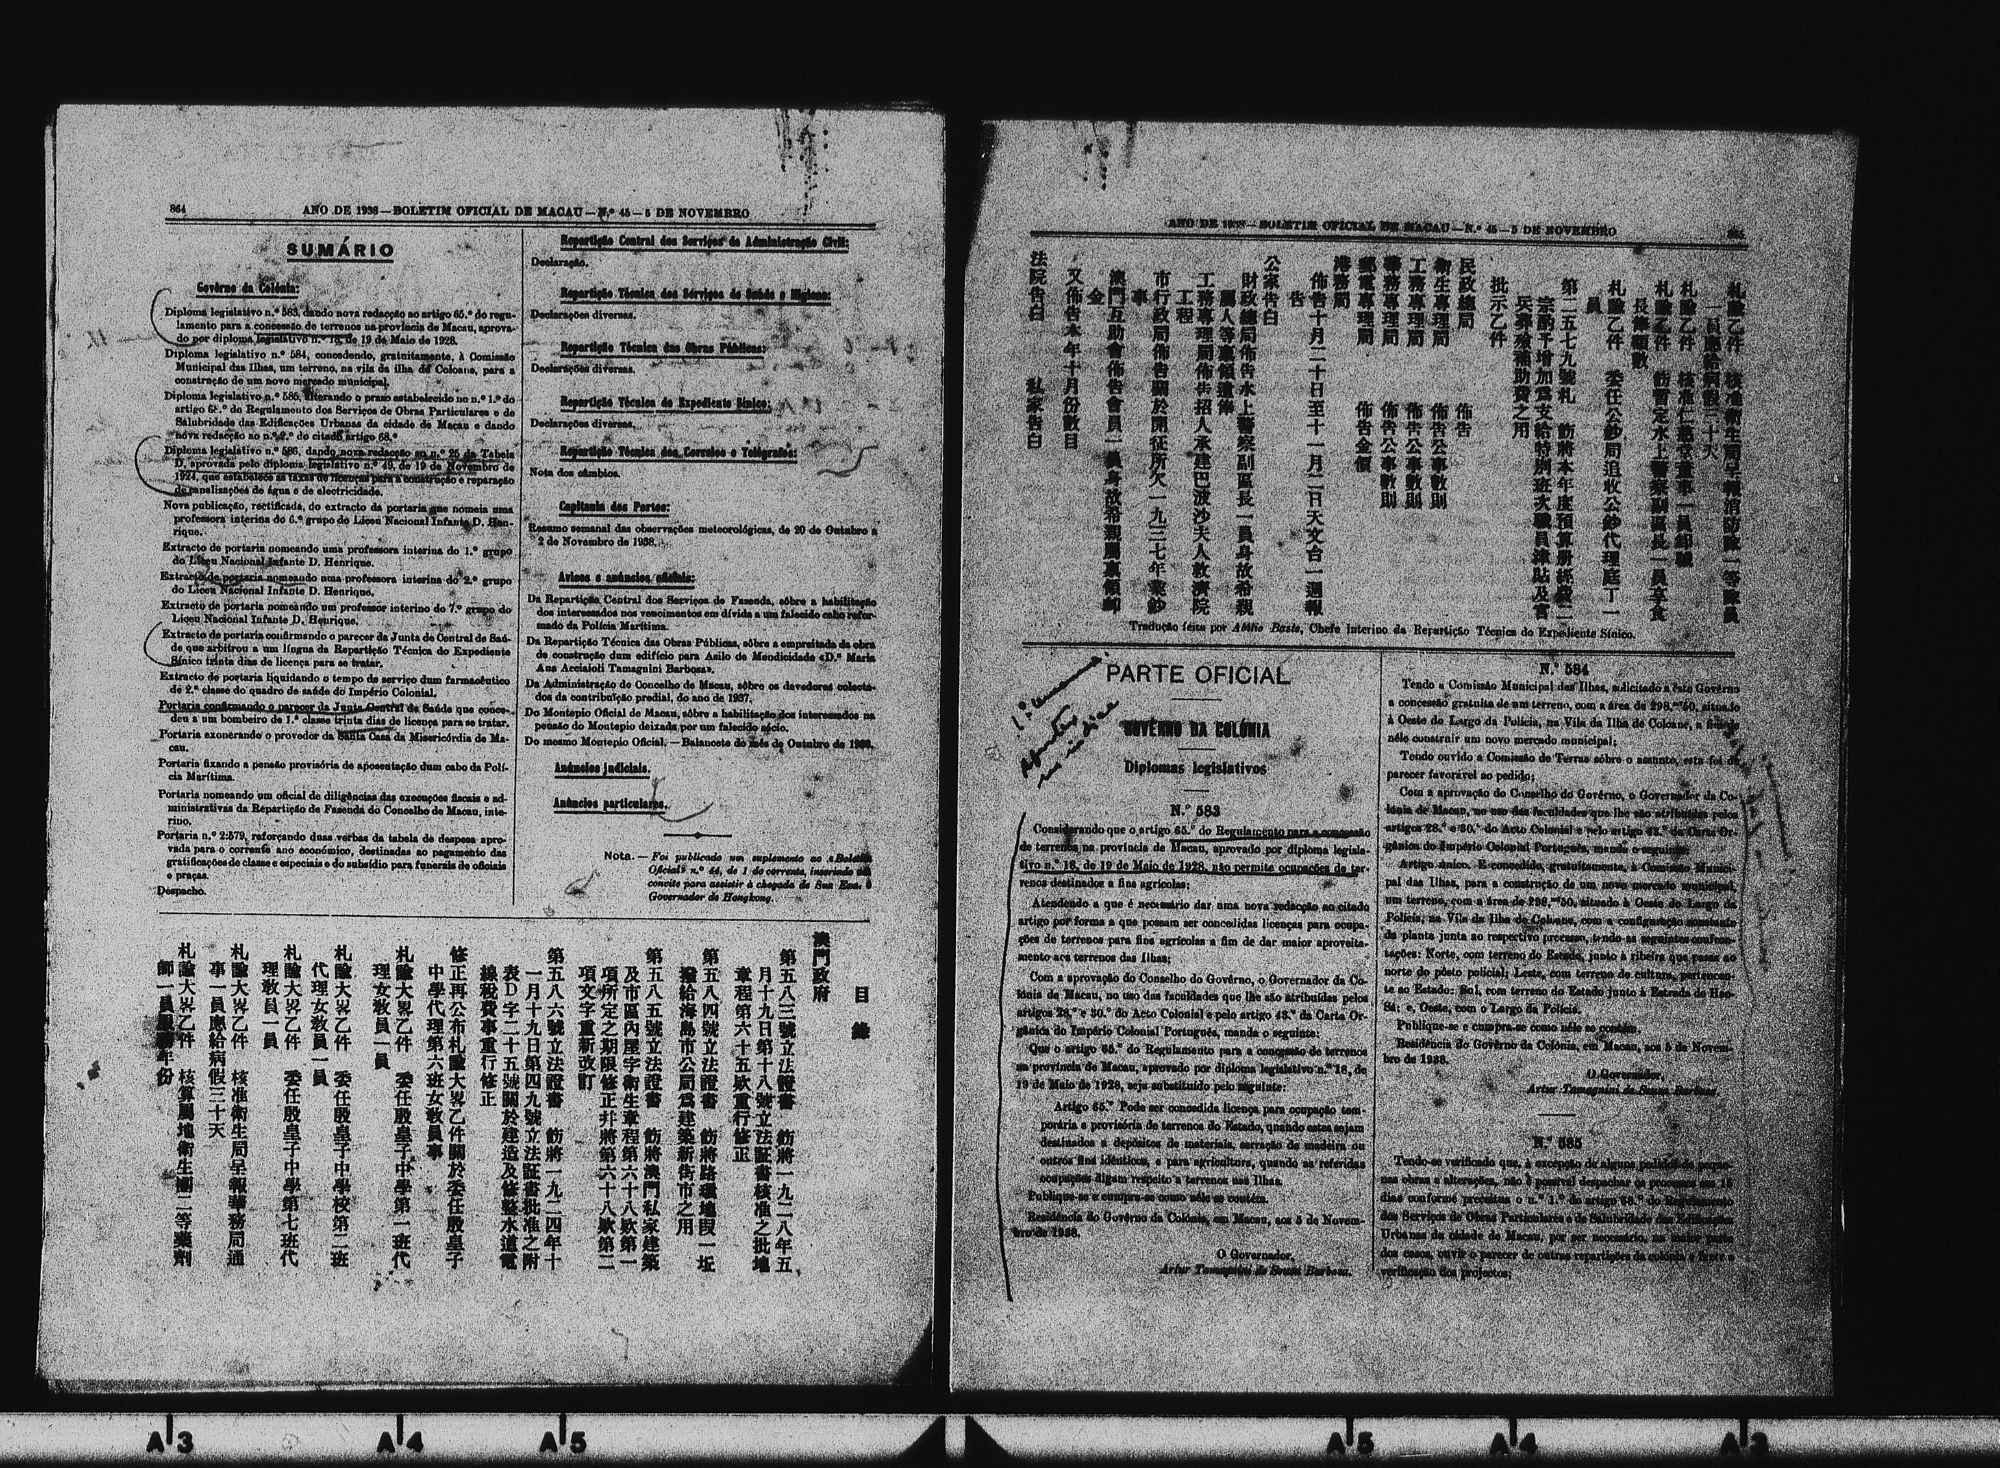 864
ANO DE 1938 — BOLETIM OFICIAL DE MACAU — N.º 45 — 5 DE NOVEMBRO
SUMÁRIO
Govêrno da Colónia:
Diploma legislativo n.º 583, dando nova redacção ao artigo 65.º do regu-
lamento para a concessão de terrenos na província de Macau, aprova-
do por diploma legislativo n.º 18, de 19 de Maio de 1928.
Diploma legislativo n.º 584, concedendo, gratuitamente, à Comissão
Municipal das Ilhas, um terreno, na vila da ilha de Coloane, para a
construção de um novo mercado municipal.
Diploma legislativo n.º 585, alterando o prazo estabelecido no n.º 1.º do
artigo 68.º do Regulamento dos Serviços de Obras Particulares e de
Salubridade das Edificações Urbanas da cidade de Macau e dando
nova redacção ao n.º 2.º do citado artigo 68.º
Diploma legislativo n.º 586, dando nova redacção ao n.º 25 da Tabela
D, aprovada pelo diploma legislativo n.º 49, de 19 de Novembro de
1924, que estabelece as taxas de licenças para a construção e reparação
de canalizações de água e de electricidade.
Nova publicação, rectificada, do extracto da portaria que nomeia uma
professora interina do 6.º grupo do Liceu Nacional Infante D. Hen-
rique.
Extracto de portaria nomeando uma professora interina do 1.º grupo
do Liceu Nacional Infante D. Henrique.
Extracto de portaria nomeando uma professora interina do 2.º grupo
do Liceu Nacional Infante D. Henrique.
Extracto de portaria nomeando um professor interino do 7.º grupo do
Liceu Nacional Infante D. Henrique.
Extracto de portaria confirmando o parecer da Junta de Central de Saú-
de que arbitrou a um língua da Repartição Técnica do Expediente
Sínico trinta dias de licença para se tratar.
Extracto de portaria liquidando o tempo de serviço dum farmacêutico
de 2.ª classe do quadro de saúde do Império Colonial.
Portaria confirmando o parecer da Junta Central de Saúde que conce-
deu a um bombeiro de 1.ª classe trinta dias de licença para se tratar.
Portaria exonerando o provedor da Santa Casa da Misericórdia de Ma-
cau.
Portaria fixando a pensão provisória de aposentação dum cabo da Polí-
cia Marítima.
Portaria nomeando um oficial de diligências das execuções fiscais e ad-
ministrativas da Repartição de Fazenda do Concelho de Macau, inte-
rino.
Portaria n.º 2:579, reforçando duas verbas da tabela de despesa apro-
vada para o corrente ano económico, destinadas ao pagamento das
gratificações de classe e especiais e do subsídio para funerais de oficiais
e praças.
Despacho.
Repartição Central dos Serviços de Administração Civil:
Declaração.
Repartição Técnica dos Serviços de Saúde e Higiene:
Declarações diversas.
Repartição Técnica das Obras Públicas:
Declarações diversas.
Repartição Técnica do Expediente Sínico:
Declarações diversas.
Repartição Técnica dos Correios e Telégrafos:
Nota dos câmbios.
Capitania dos Portos:
Resumo semanal das observações meteorológicas, de 20 de Outubro a
2 de Novembro de 1938.
Avisos e anúncios oficiais:
Da Repartição Central dos Serviços de Fazenda, sôbre a habilitação
dos interessados nos vencimentos em dívida a um falecido cabo refor-
mado da Polícia Marítima.
Da Repartição Técnica das Obras Públicas, sôbre a empreitada da obra
de construção dum edifício para Asilo de Mendicidade «D.ª Maria
Ana Acciaioli Tamagnini Barbosa».
Da Administração do Concelho de Macau, sôbre os devedores colecta-
dos da contribuição predial, do ano de 1937.
Do Montepio Oficial de Macau, sôbre a habilitação dos interessados na
pensão do Montepio deixada por um falecido sócio.
Do mesmo Montepio Oficial. — Balancete do mês de Outubro de 1938.
Anúncios judiciais.
Anúncios particulares.
Nota. — Foi publicado um suplemento ao «Boletim
Oficial» n.º 44, de 1 do corrente, inserindo um
convite para assistir à chegada de Sua Exa. o
Governador de Hongkong.
目錄
澳門政府
第五八三號立法證書 飭將一九二八年五
月十九日第十八號立法証書核准之批地
章程第六十五欵重行修正
第五八四號立法證書 飭將路環地叚一坵
撥給海島市公局爲建築新街市之用
第五八五號立法證書 飭將澳門私家建築
及市區內屋宇衛生章程第六十八欵第一
項所定之期限修正幷將第六十八欵第二
項文字重新改訂
第五八六號立法證書 飭將一九二四年十
一月十九日第四九號立法証書批准之附
表D字二十五號關於建造及修整水道電
線稅費事重行修正
修正再公布札諭大畧乙件關於委任殷皇子
中學代理第六班女教員事
札諭大畧乙件 委任殷皇子中學第一班代
理女教員一員
札諭大畧乙件 委任殷皇子中學校第二班
代理女教員一員
札諭大畧乙件 委任殷皇子中學第七班代
理教員一員
札諭大畧乙件 核准衛生局呈報華務局通
事一員應給病假三十天
札諭大畧乙件 核算屬地衛生團二等藥劑
師一員服務年份
ANO DE 1938 — BOLETIM OFICIAL DE MACAU — N.º 45 — 5 DE NOVEMBRO
札諭乙件 核准衛生局呈報消防隊一等隊員
一員應給病假三十天
札諭乙件 核准仁慈堂董事一員卸職
札諭乙件 飭暫定水上警察副區長一員享食
長俸額數
札諭乙件 委任公鈔局追收公鈔代理庭丁一
員
第二五七九號札 飭將本年度預算册經費二
宗酌予增加爲支給特別班次職員津貼及官
兵葬殮補助費之用
批示乙件
民政總局 佈告
衛生專理局 佈告公事數則
工務專理局 佈告公事數則
華務專理局 佈告公事數則
郵電專理局 佈告金價
港務局
佈告十月二十日至十一月二日天文台一週報
告
公家告白
財政總局佈告水上警察副區長一員身故希親
屬人等稟領遺俸
工務專理局佈告招人承建巴波沙夫人救濟院
工程
市行政局佈告關於開征所欠一九三七年業鈔
事
澳門互助會佈告會員一員身故希親屬稟領卹
金
又佈告本年十月份數目
法院告白 私家告白
Tradução feita por Abílio Basto, Chefe Interino da Repartição Técnica do Expediente Sínico.
PARTE OFICIAL
GOVÊRNO DA COLÓNIA
Diplomas legislativos
N.º 583
Considerando que o artigo 65.º do Regulamento para a concessão
de terrenos na província de Macau, aprovado por diploma legisla-
tivo n.º 18, de 19 de Maio de 1928, não permite ocupações de ter-
renos destinados a fins agrícolas;
Atendendo a que é necessário dar uma nova redacção ao citado
artigo por forma a que possam ser concedidas licenças para ocupa-
ções de terrenos para fins agrícolas a fim de dar maior aproveita-
mento aos terrenos das Ilhas;
Com a aprovação do Conselho do Govêrno, o Governador da Co-
lónia de Macau, no uso das faculdades que lhe são atribuídas pelos
artigos 28.º e 30.º do Acto Colonial e pelo artigo 43.º da Carta Or-
gânica do Império Colonial Português, manda o seguinte:
Que o artigo 65.º do Regulamento para a concessão de terrenos
na província de Macau, aprovado por diploma legislativo n.º 18, de
19 de Maio de 1928, seja substituído pelo seguinte:
Artigo 65.º Pode ser concedida licença para ocupação tem-
porária e provisória de terrenos do Estado, quando estes sejam
destinados a depósitos de materiais, serração de madeira ou
outros fins idênticos, e para agricultura, quando as referidas
ocupações digam respeito a terrenos nas Ilhas.
Publique-se e cumpra-se como nêle se contém.
Residência do Govêrno da Colónia, em Macau, aos 5 de Novem-
bro de 1938.
O Governador,
Artur Tamagnini de Sousa Barbosa.
N.º 584
Tendo a Comissão Municipal das Ilhas, solicitado a êste Govêrno
a concessão gratuita de um terreno, com a área de 298,m2 50, situado
à Oeste do Largo da Polícia, na Vila da Ilha de Coloane, a fim de
nêle construir um novo mercado municipal;
Tendo ouvido a Comissão de Terras sôbre o assunto, esta foi de
parecer favorável ao pedido;
Com a aprovação do Conselho do Govêrno, o Governador da Co-
lónia de Macau, no uso das faculdades que lhe são atribuídas pelos
artigos 28.º e 30.º do Acto Colonial e pelo artigo 43.º da Carta Or-
gânica do Império Colonial Português, manda o seguinte:
Artigo único. É concedido, gratuitamente, à Comissão Munici-
pal das Ilhas, para a construção de um novo mercado municipal,
um terreno, com a área de 298,m2 50, situado à Oeste do Largo da
Polícia, na Vila da Ilha de Coloane, com a configuração constante
da planta junta ao respectivo processo, tendo as seguintes confron-
tações: Norte, com terreno do Estado, junto à ribeira que passa ao
norte do pôsto policial; Leste, com terreno de cultura, pertencen-
te ao Estado; Sul, com terreno do Estado junto à Estrada de Hac-
Sá; e, Oeste, com o Largo da Polícia.
Publique-se e cumpra-se como nêle se contém.
Residência do Govêrno da Colónia, em Macau, aos 5 de Novem-
bro de 1938.
O Governador,
Artur Tamagnini de Sousa Barbosa.
N.º 585
Tendo-se verificado que, à excepção de alguns pedidos de peque-
nas obras e alterações, não é possível despachar os processos em 15
dias conforme preceitua o n.º 1.º do artigo 68.º do Regulamento
dos Serviços de Obras Particulares e de Salubridade das Edificações
Urbanas da cidade de Macau, por ser necessário, na maior parte
dos casos, ouvir o parecer de outras repartições da colónia e fazer a
verificação dos projectos;
A3
A4
A5
A5
A4
A3